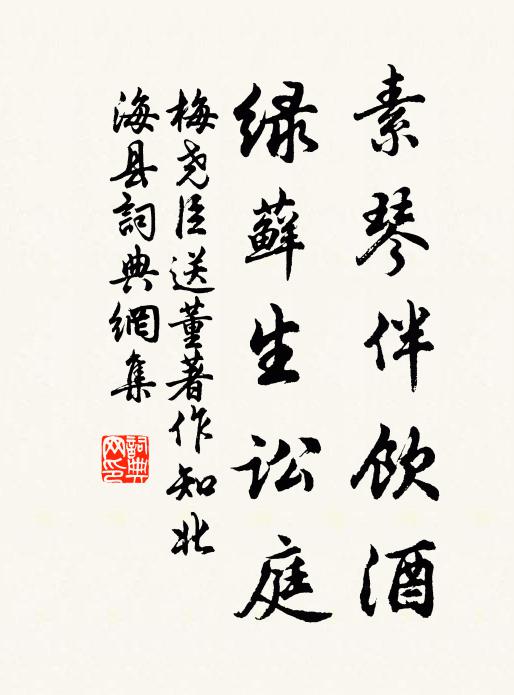 素琴伴饮酒
绿藓生讼庭
梅尧臣送董著作知北
海县詞典網集
詞典
网印